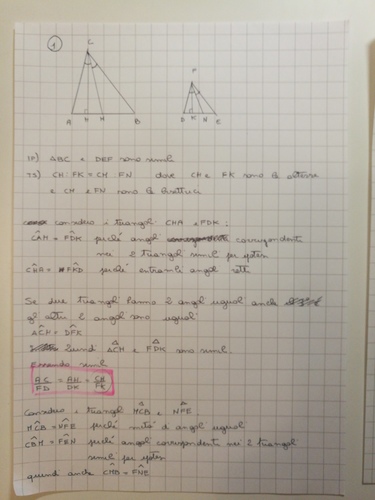 1
C
F
A H M B
D K N E
IP) ABC e DEF sono simili
TS) CH : FK = CM : FN dove CH e FK sono le altezze
e CM e FN sono le bisettrici
considero i triangoli CHA e FDK:
CÂH = FD̂K perché angoli corrispondenti
nei 2 triangoli simili per ipotesi
CĤA = FK̂D perché entrambi angoli retti
Se due triangoli hanno 2 angoli uguali anche
gli altri 2 angoli sono uguali
AĈH = DF̂K
quindi ACH e FDK sono simili.
Essendo simili
AC/FD = AH/DK = CH/FK
Considero i triangoli MCB e NFE.
MĈB = NF̂E perché metà di angoli uguali
CB̂M = FÊN perché angoli corrispondenti nei 2 triangoli
simili per ipotesi
quindi anche CM̂B = FN̂E